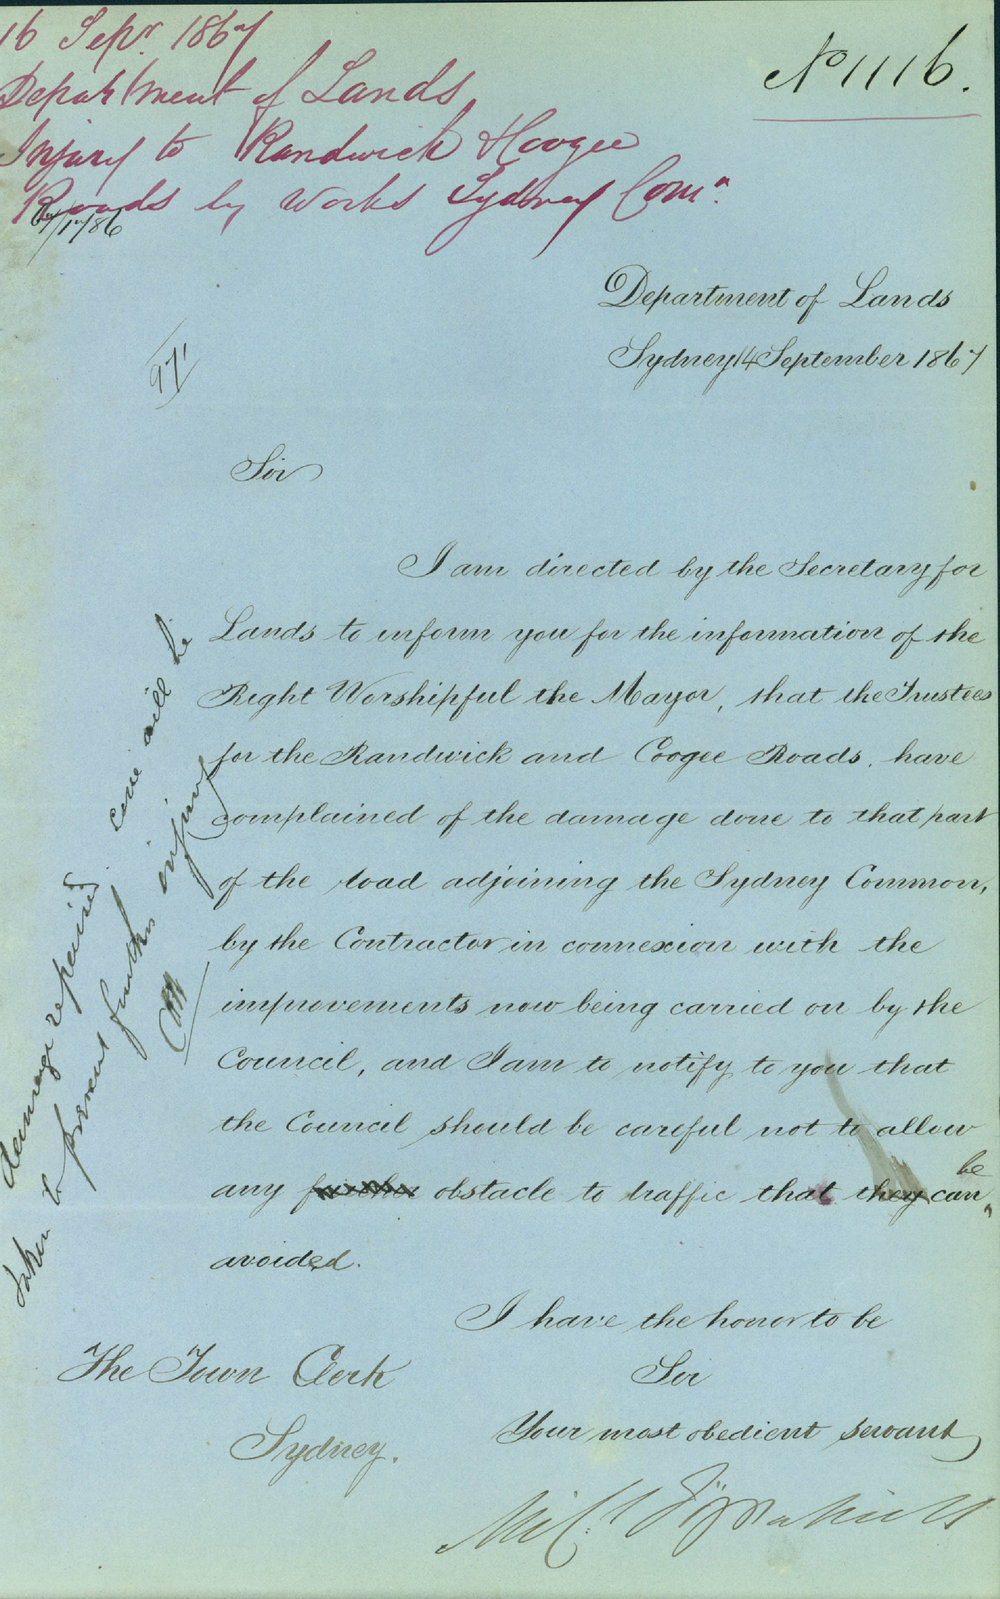 16 Sepr 1867
Department of Lands
Injury to Randwick & Coogee
Roads by Works Sydney Comn.
No 1116.
Department of Lands
Sydney 14 September 1867
97/
Sir
I am directed by the Secretary for
Lands to inform you for the information of the
Right Worshipful the Mayor, that the Trustees
for the Randwick and Coogee Roads, have
complained of the damage done to that part
of the road adjoining the Sydney Common,
by the Contractor in connexion with the
improvements now being carried on by the
Council, and I am to notify to you that
the Council should be careful not to allow
any further obstacle to traffic that they can be
avoided.
I have the honor to be
Sir
Your most obedient servant
Michl Fitzpatrick
The Town Clerk
Sydney.
damage repaired care will be
taken to prevent further injury